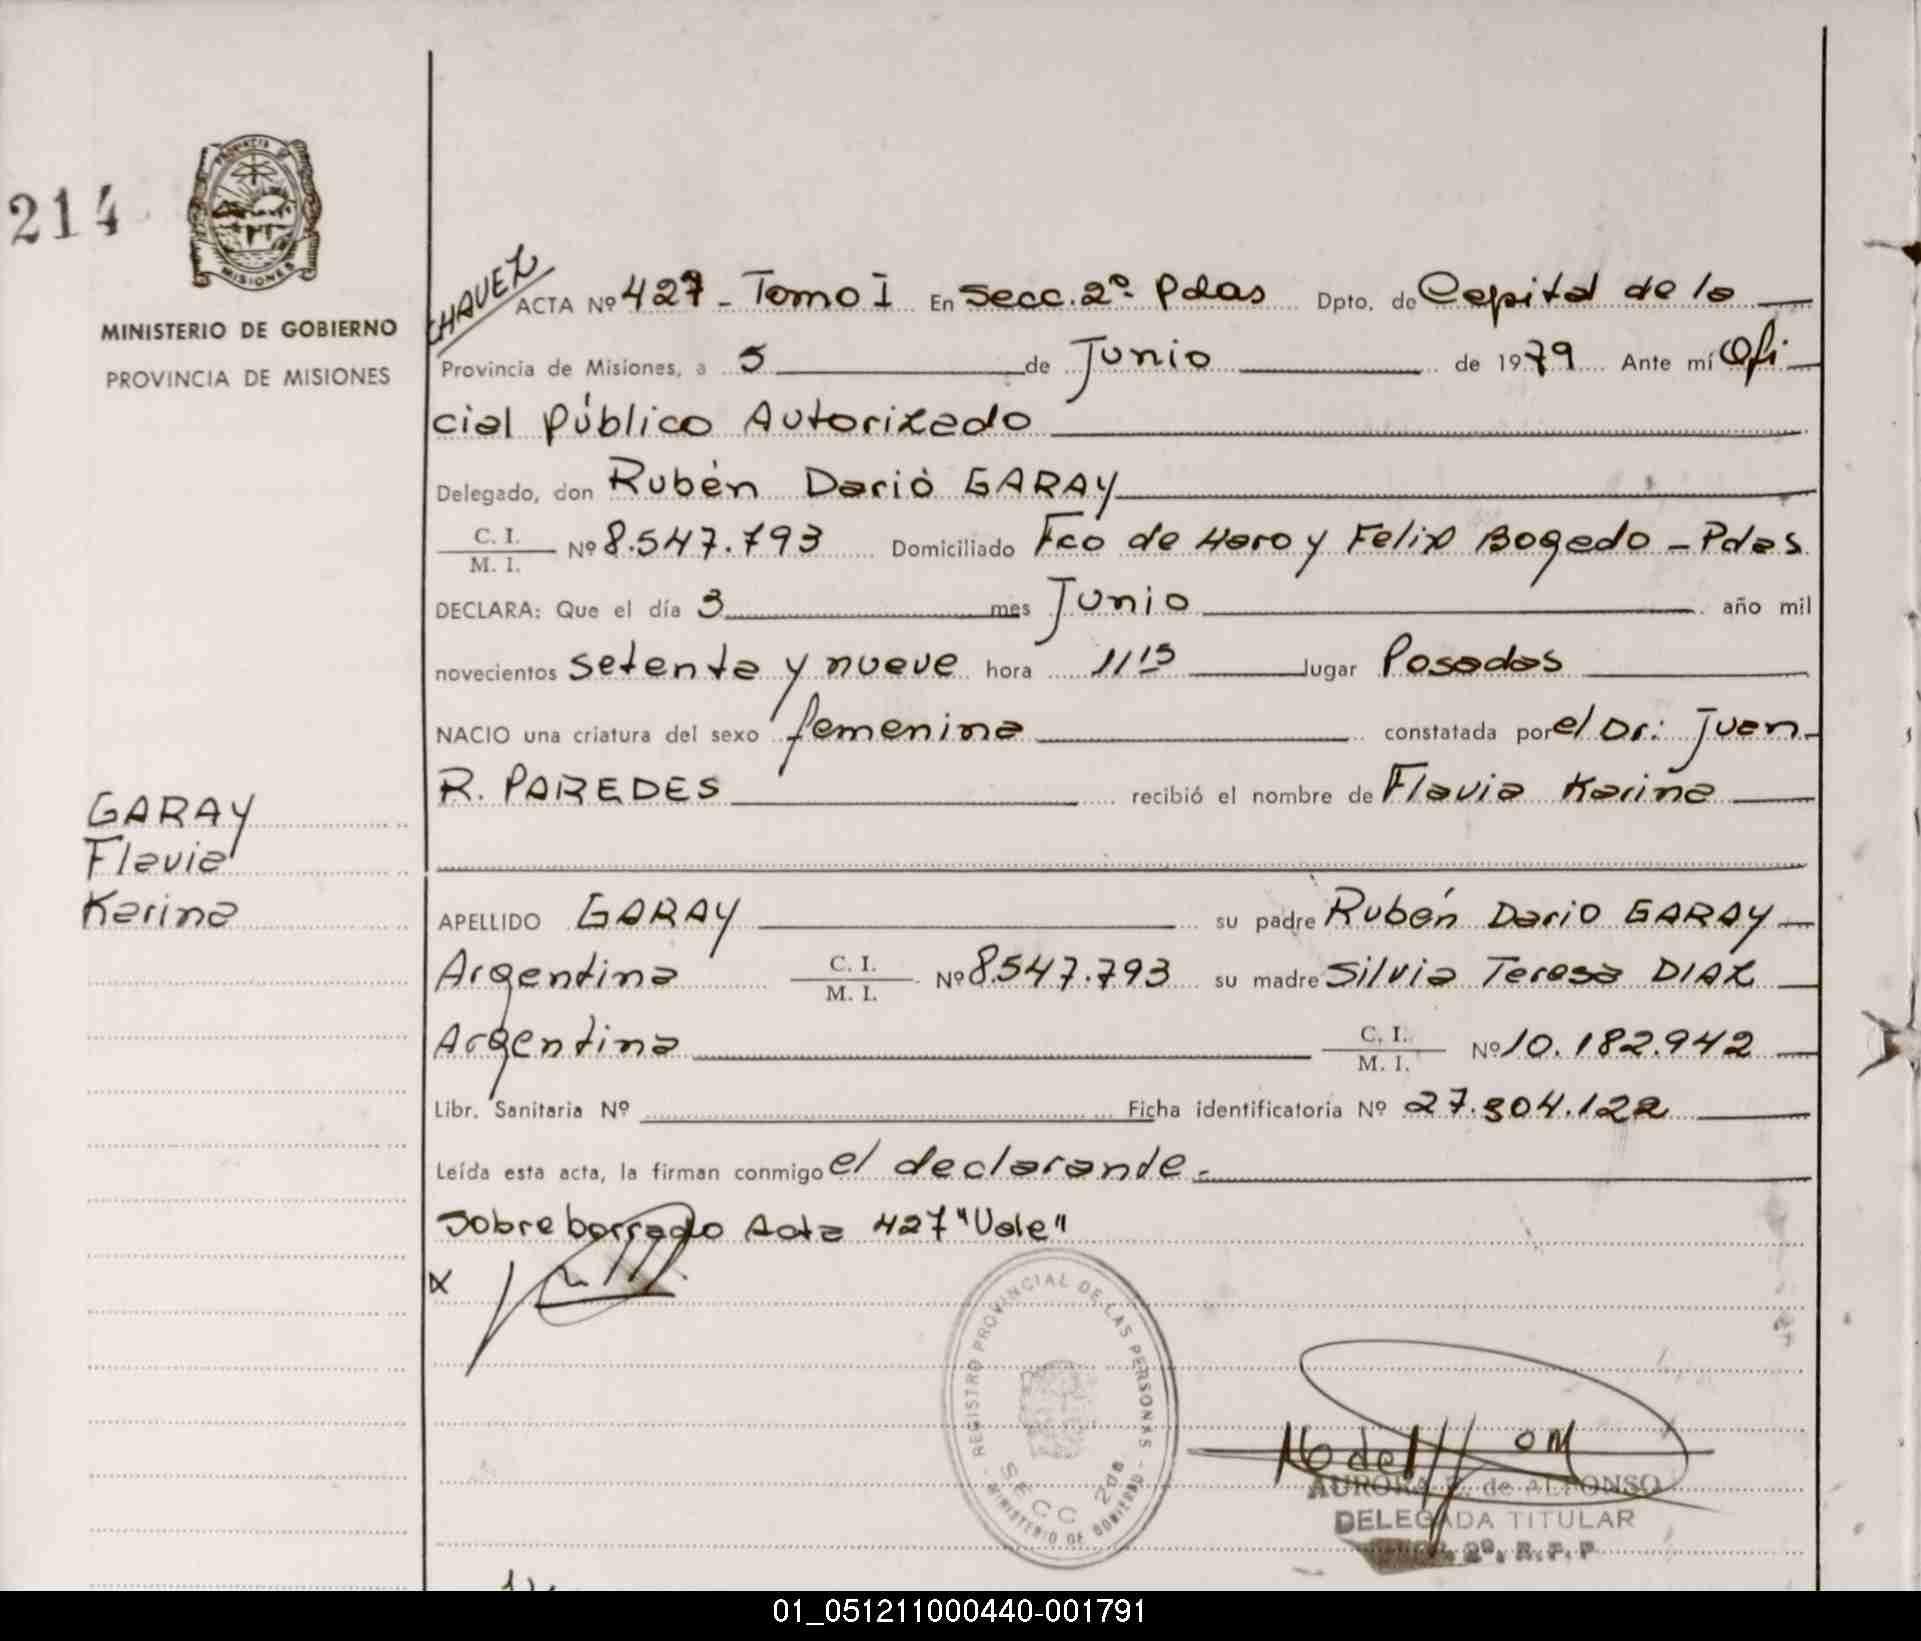 214
PROVINCIA DE
MISIONES
MINISTERIO DE GOBIERNO
PROVINCIA DE MISIONES
GARAY
Flavia
Karina
CHAVEZ
ACTA Nº 427 - Tomo I En Secc. 2º Pdas Dpto. de Capital de la
Provincia de Misiones, a 5 de Junio de 1979 Ante mí Ofi
cial Público Autorizado
Delegado, don Rubén Darió GARAY
C. I.
M. I. Nº 8.547.793 Domiciliado Fco de Haro y Felix Bogado - Pdas
DECLARA: Que el día 3 mes Junio año mil
novecientos setenta y nueve hora 11 15 lugar Posadas
NACIO una criatura del sexo femenina constatada por el Dr: Juan
R. PAREDES recibió el nombre de Flavia Karina
APELLIDO GARAY su padre Rubén Dario GARAY
Argentina C. I.
M. I. Nº 8.547.793 su madre Silvia Teresa DIAZ
Argentina C. I.
M. I. Nº 10.182.942
Libr. Sanitaria Nº Ficha identificatoria Nº 27.304.122
Leída esta acta, la firman conmigo el declarante.-
Sobreborrado Acta 427 "Vale"
x
REGISTRO PROVINCIAL DE LAS PERSONAS
SECC 2da
MINISTERIO DE GOBIERNO
AURORA de ALFONSO
DELEGADA TITULAR
2º. R.P.P
01_051211000440-001791